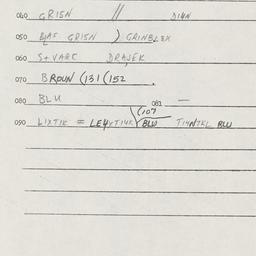 040 GRISN // DIUN
050 BJAF GRISN ) GRINBLEK
060 S+VARC DRAJEK
070 BROUN (131 (152
080 BLU 081 —
090 LIXTIK = LE4XTI4K (107 BLU TI4N7KL BLU